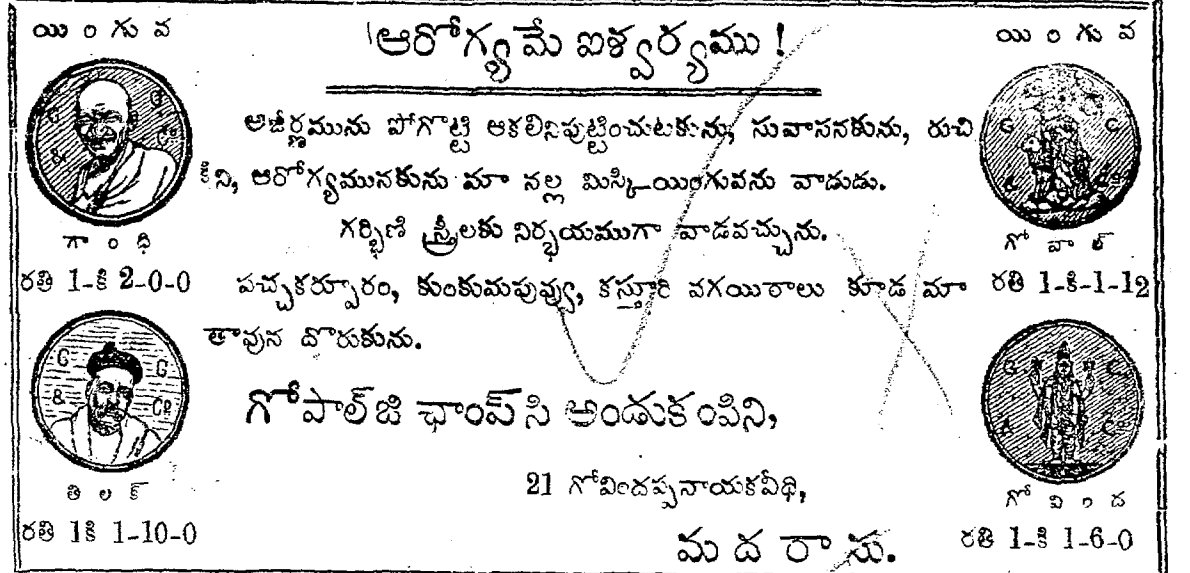 యింగువ
గాంధి
రతి 1-కి 2-0-0
తిలక్
రతి 1కి 1-10-0
ఆరోగ్యమే ఐశ్వర్యము !
అజీర్ణమును పోగొట్టి ఆకలినిపుట్టించుటకును, సువాసనకును, రుచి
కిని, ఆరోగ్యమునకును మా నల్ల మిస్కి-యింగువను వాడుడు.
గర్భిణి స్త్రీలకు నిర్భయముగా వాడవచ్చును.
పచ్చకర్పూరం, కుంకుమపువ్వు, కస్తూరి వగయిరాలు కూడ మా
తావున దొరుకును.
గోపాల్‌జి ఛాంప్‌సి అండుకంపిని,
21 గోవిందప్పనాయకవీథి,
మదరాసు.
యింగువ
గోపాల్
రతి 1-కి-1-12
గోవింద
రతి 1-కి 1-6-0